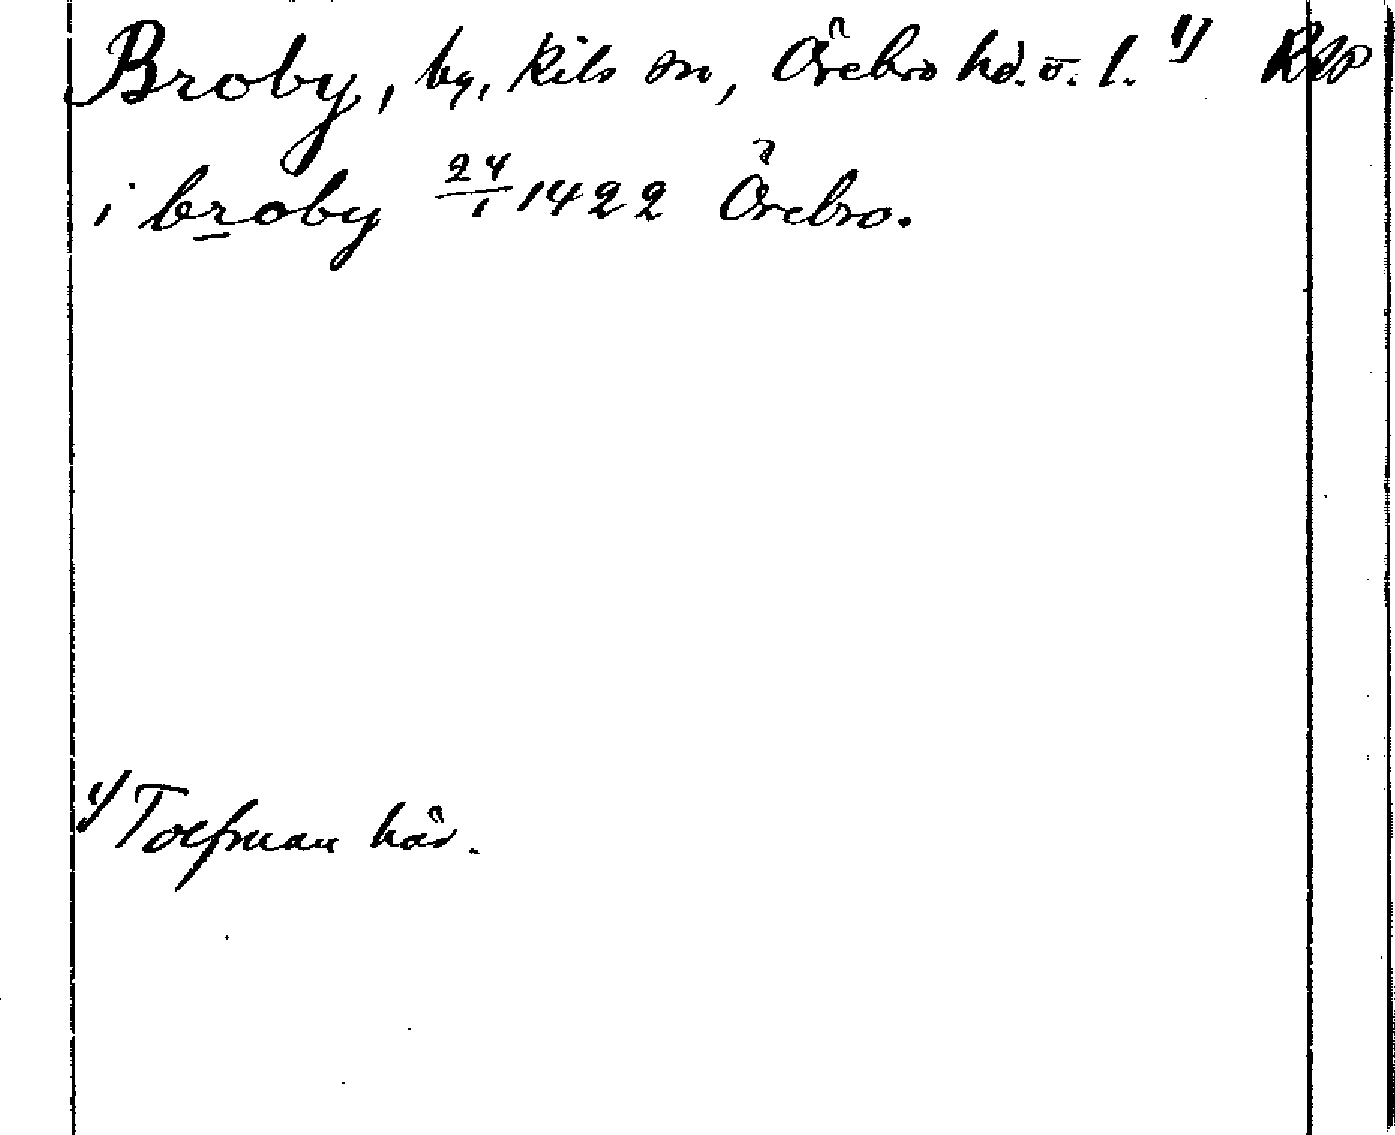 Broby, by, Kils sn, Örebro hd. o. l. 1) Rap
i broby 24/1 1422 Örebro.
1) Tolfman här.